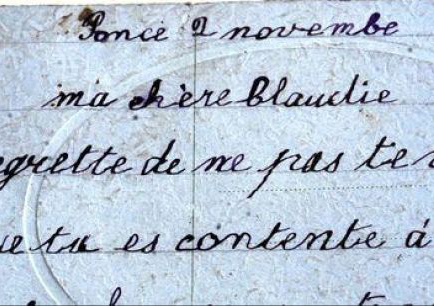 Ponce 2 novembre
ma chère Claudie
egrette de ne pas te
ue tu es contente à